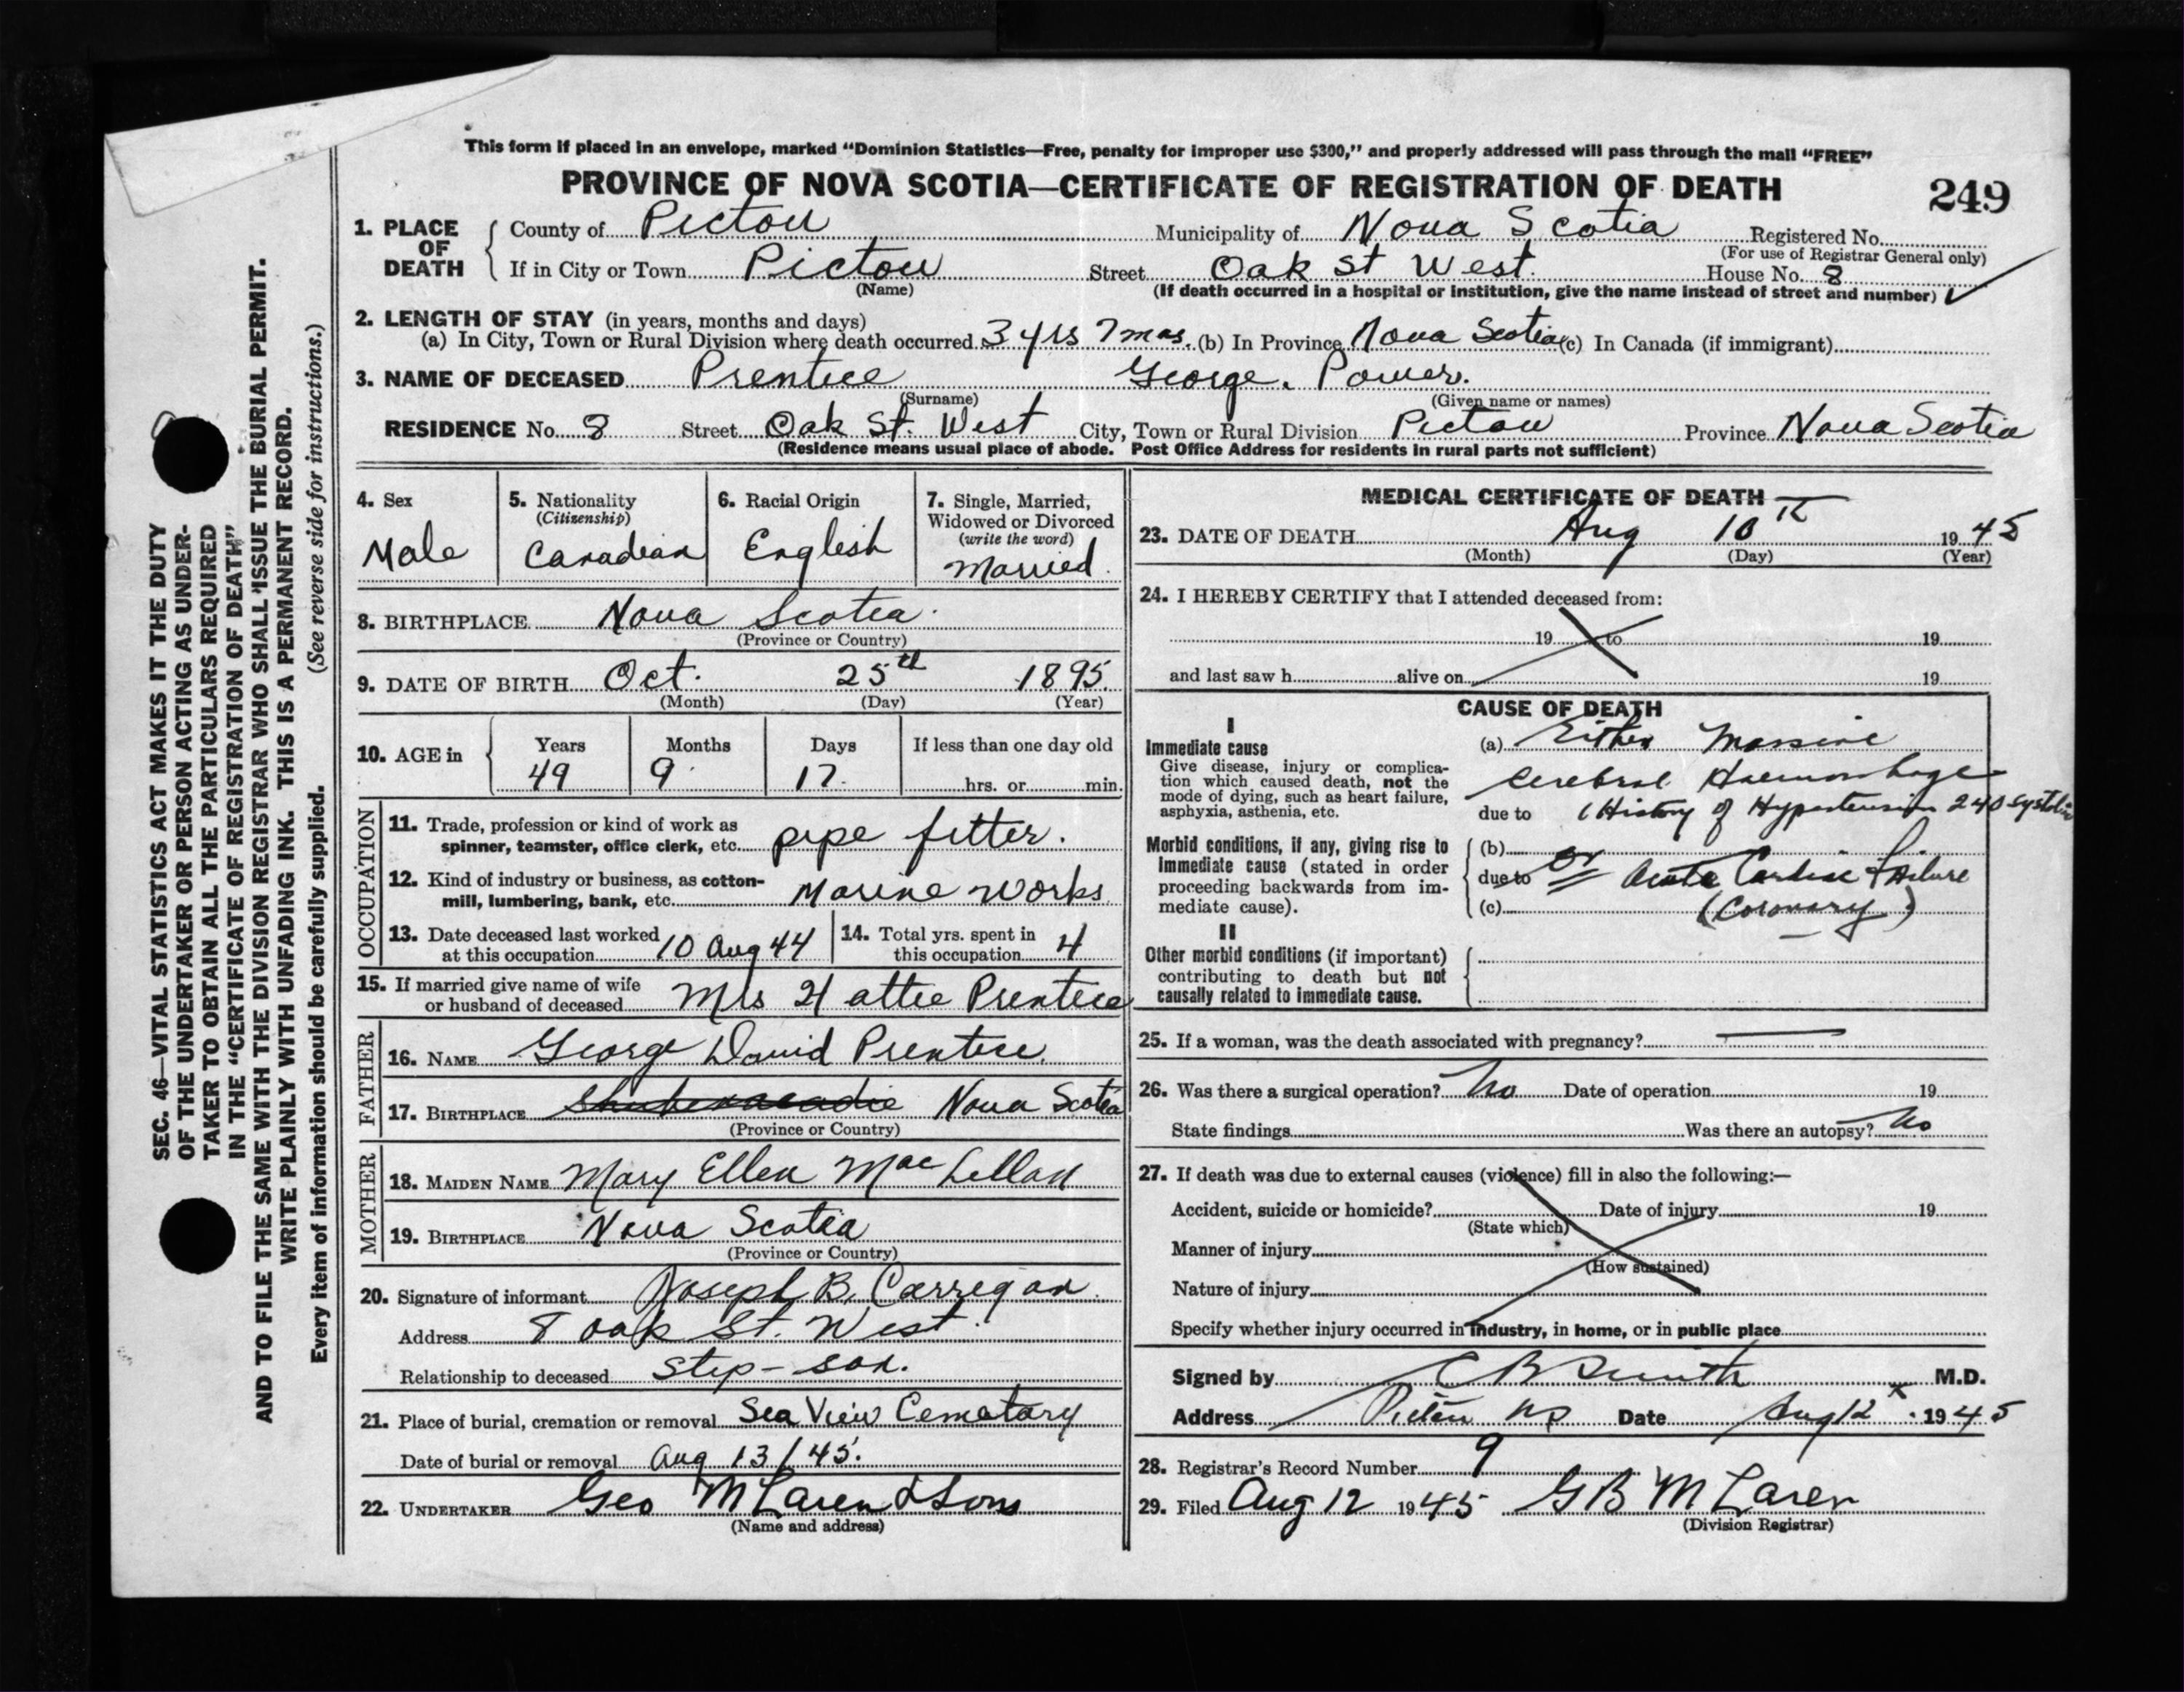 This form if placed in an envelope, marked “Dominion Statistics—Free, penalty for improper use $300,” and properly addressed will pass through the mail “FREE”
PROVINCE OF NOVA SCOTIA—CERTIFICATE OF REGISTRATION OF DEATH 249
1. PLACE OF DEATH County of Pictou Municipality of Nova Scotia Registered No.
(For use of Registrar General only)
If in City or Town Pictou Street Oak St West. House No. 8
(Name) (If death occurred in a hospital or institution, give the name instead of street and number)
2. LENGTH OF STAY (in years, months and days)
(a) In City, Town or Rural Division where death occurred 3 yrs 7 mos. (b) In Province Nova Scotia (c) In Canada (if immigrant)
3. NAME OF DECEASED Prentice George. Power.
(Surname) (Given name or names)
RESIDENCE No. 8 Street Oak St. West City, Town or Rural Division Pictou Province Nova Scotia
(Residence means usual place of abode. Post Office Address for residents in rural parts not sufficient)
4. Sex
Male
5. Nationality
(Citizenship)
Canadian
6. Racial Origin
English
7. Single, Married,
Widowed or Divorced
(write the word)
Married.
8. BIRTHPLACE Nova Scotia.
(Province or Country)
9. DATE OF BIRTH Oct. 25th 1895.
(Month) (Day) (Year)
10. AGE in Years Months Days If less than one day old
49 9 17. hrs. or min.
OCCUPATION
11. Trade, profession or kind of work as
spinner, teamster, office clerk, etc. pipe fitter.
12. Kind of industry or business, as cotton-
mill, lumbering, bank, etc. Marine Works
13. Date deceased last worked
at this occupation 10 Aug 44
14. Total yrs. spent in
this occupation 4
15. If married give name of wife
or husband of deceased Mrs Hattie Prentice
FATHER
16. NAME George David Prentice
17. BIRTHPLACE Shubenacadie Nova Scotia
(Province or Country)
MOTHER
18. MAIDEN NAME Mary Ellen MacLellan
19. BIRTHPLACE Nova Scotia
(Province or Country)
20. Signature of informant Joseph B. Carrigan.
Address 8 Oak St. West.
Relationship to deceased step-son.
21. Place of burial, cremation or removal Sea View Cematary
Date of burial or removal Aug 13/45.
22. UNDERTAKER Geo McLaren & Sons
(Name and address)
MEDICAL CERTIFICATE OF DEATH
23. DATE OF DEATH Aug 10th 1945
(Month) (Day) (Year)
24. I HEREBY CERTIFY that I attended deceased from:
19 to 19
and last saw h alive on 19
CAUSE OF DEATH
I
Immediate cause
Give disease, injury or complica-
tion which caused death, not the
mode of dying, such as heart failure,
asphyxia, asthenia, etc.
(a) Either Massive
Cerebral Haemorrhage
due to (History of Hypertension 240 systolic
Morbid conditions, if any, giving rise to
immediate cause (stated in order
proceeding backwards from im-
mediate cause).
(b)
due to or Acute Cardiac Failure
(c) (Coronary)
II
Other morbid conditions (if important)
contributing to death but not
causally related to immediate cause.
25. If a woman, was the death associated with pregnancy?
26. Was there a surgical operation? No Date of operation 19
State findings Was there an autopsy? No
27. If death was due to external causes (violence) fill in also the following:—
Accident, suicide or homicide? Date of injury 19
(State which)
Manner of injury
(How sustained)
Nature of injury
Specify whether injury occurred in industry, in home, or in public place
Signed by C B Smith M.D.
Address Pictou NS Date Aug 12 1945
28. Registrar's Record Number 9
29. Filed Aug 12 1945 G B McLaren
(Division Registrar)
SEC. 46—VITAL STATISTICS ACT MAKES IT THE DUTY
OF THE UNDERTAKER OR PERSON ACTING AS UNDER-
TAKER TO OBTAIN ALL THE PARTICULARS REQUIRED
IN THE “CERTIFICATE OF REGISTRATION OF DEATH”
AND TO FILE THE SAME WITH THE DIVISION REGISTRAR WHO SHALL ISSUE THE BURIAL PERMIT.
WRITE PLAINLY WITH UNFADING INK. THIS IS A PERMANENT RECORD.
Every item of information should be carefully supplied. (See reverse side for instructions.)